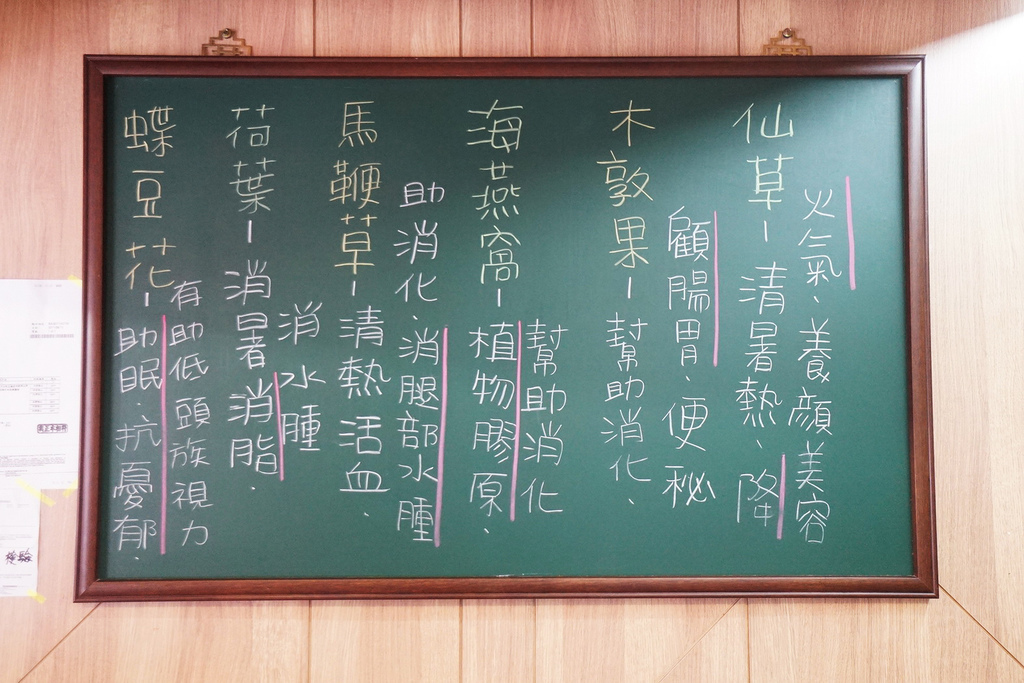 蝶豆花-助眠、抗憂郁、
有助低頭族視力
荷葉-消暑消脂、
消水腫
馬鞭草-清熱活血、
助消化、消腿部水腫
海燕窩-植物膠原、
幫助消化
木敦果-幫助消化、
顧腸胃、便秘
仙草-清暑熱、降
火氣、養顏美容